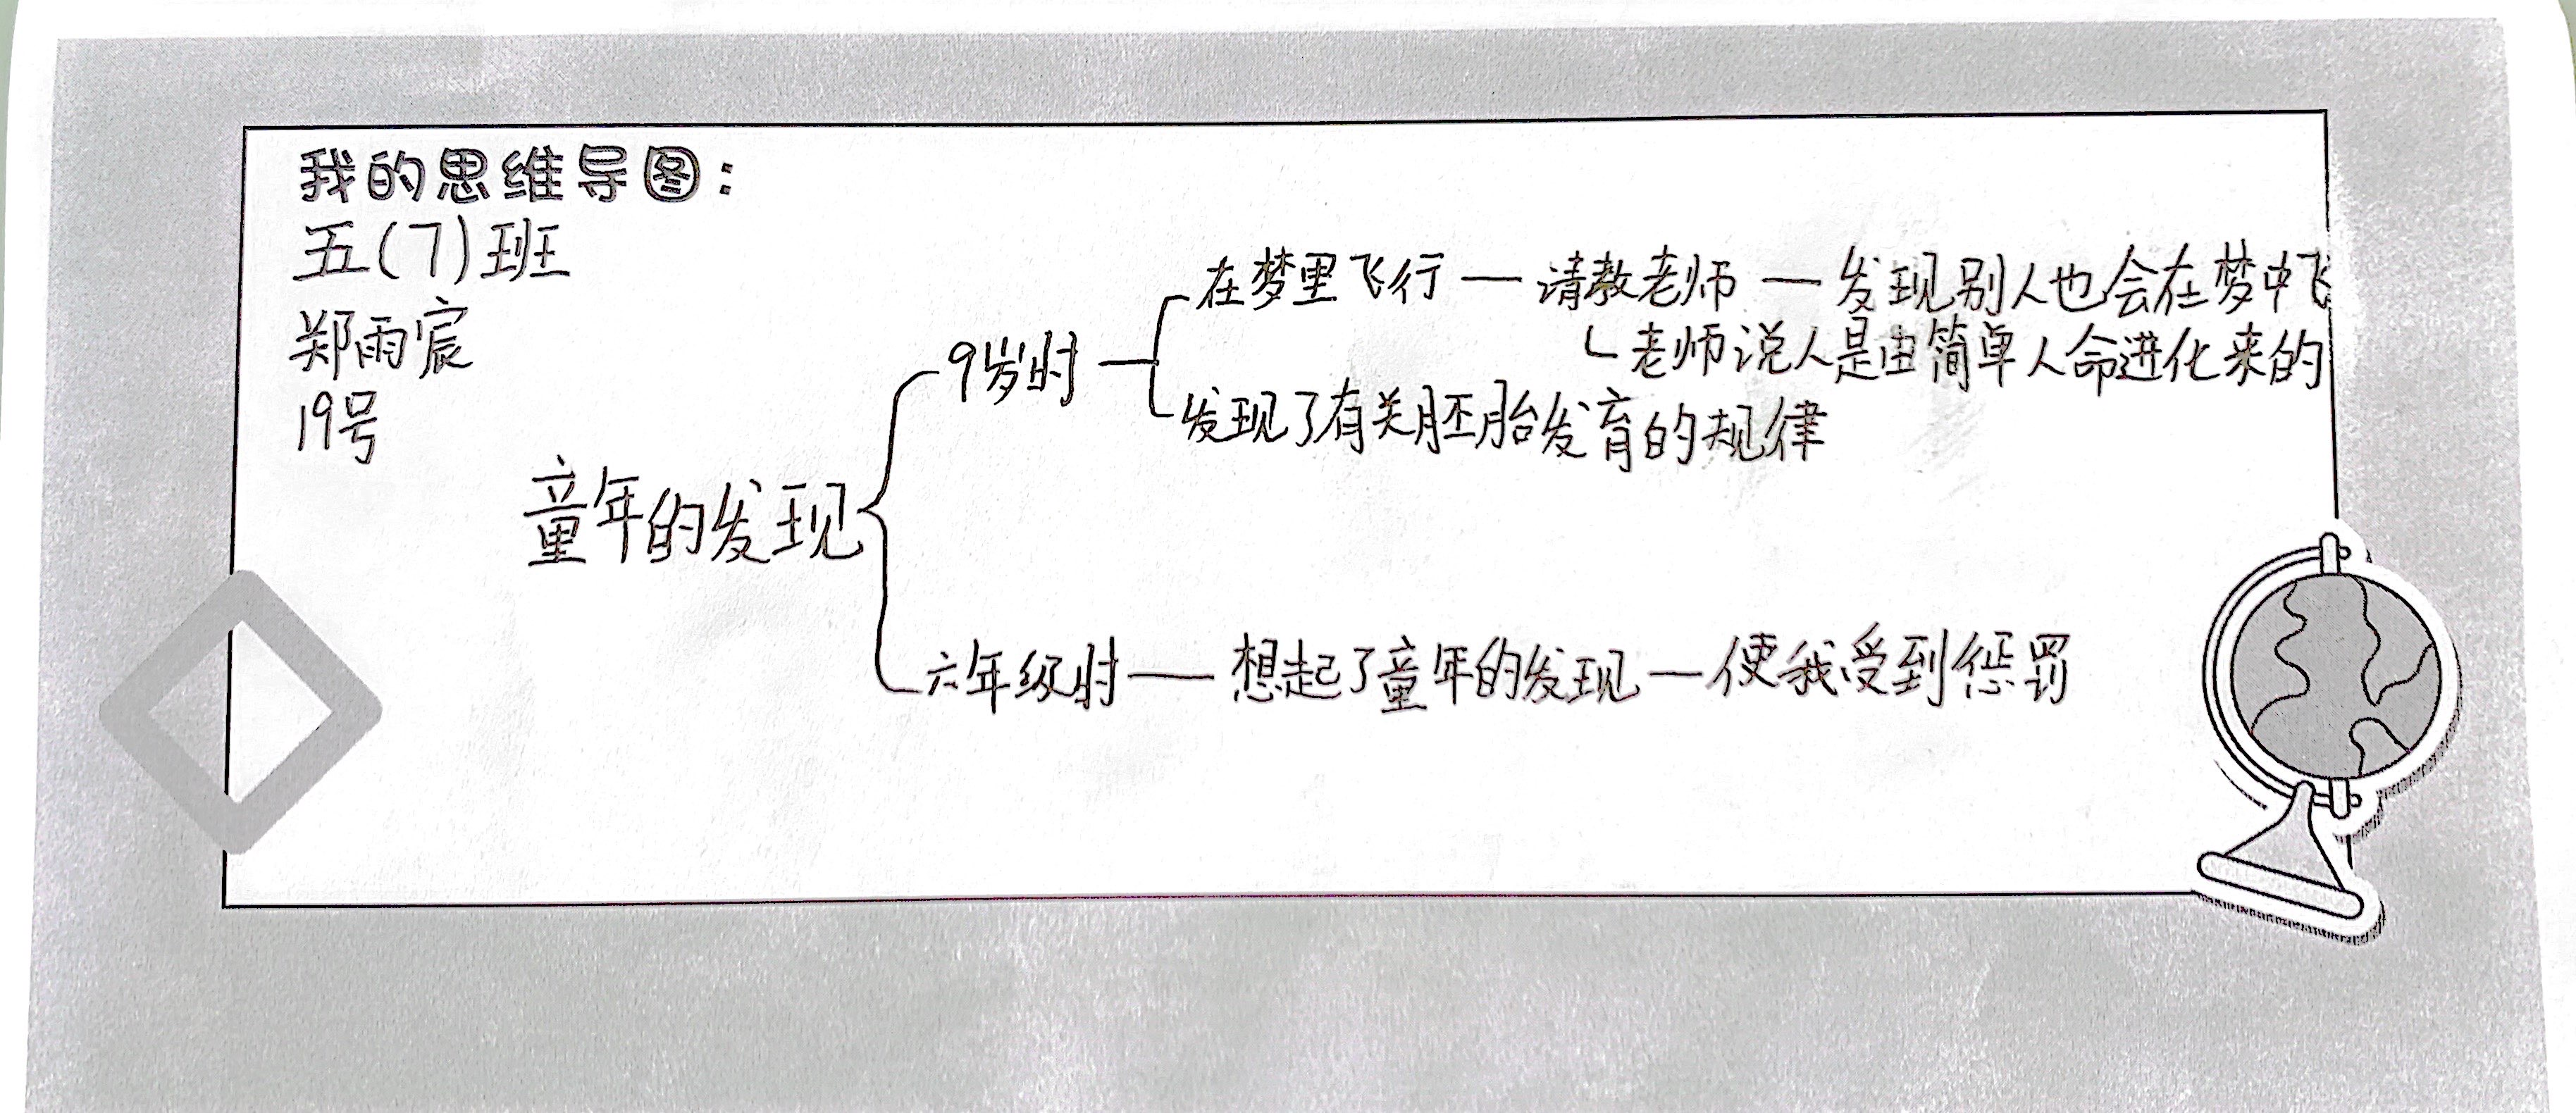 我的思维导图：
五(7)班
郑雨宸
19号
童年的发现
9岁时
在梦里飞行 — 请教老师 — 发现别人也会在梦中飞
老师说人是由简单人命进化来的
发现了有关胚胎发育的规律
六年级时 — 想起了童年的发现 — 使我受到惩罚